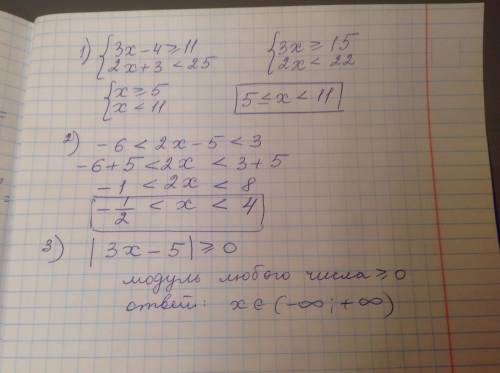 1) { 3x - 4 ≥ 11    { 3x ≥ 15
2x + 3 < 25    2x < 22
{ x ≥ 5    5 ≤ x < 11
x < 11
2) - 6 < 2x - 5 < 3
-6+5 < 2x < 3+5
-1 < 2x < 8
-1/2 < x < 4
3) |3x - 5| ≥ 0
модуль любого числа ≥ 0
ответ: x ∈ (-∞; +∞)